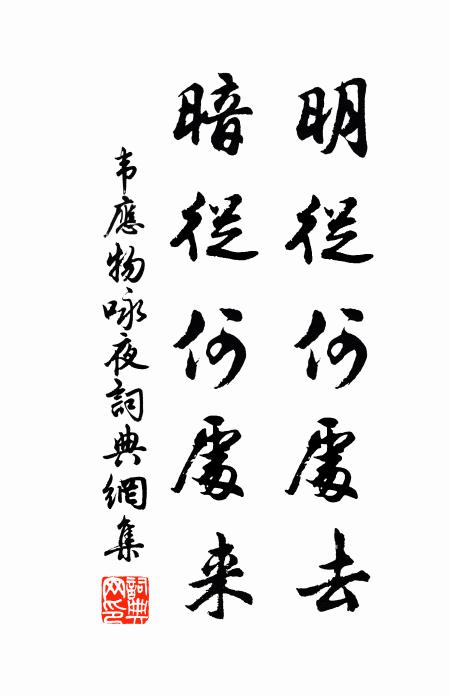 明從何處去
暗從何處来
韦應物咏夜詞典網集